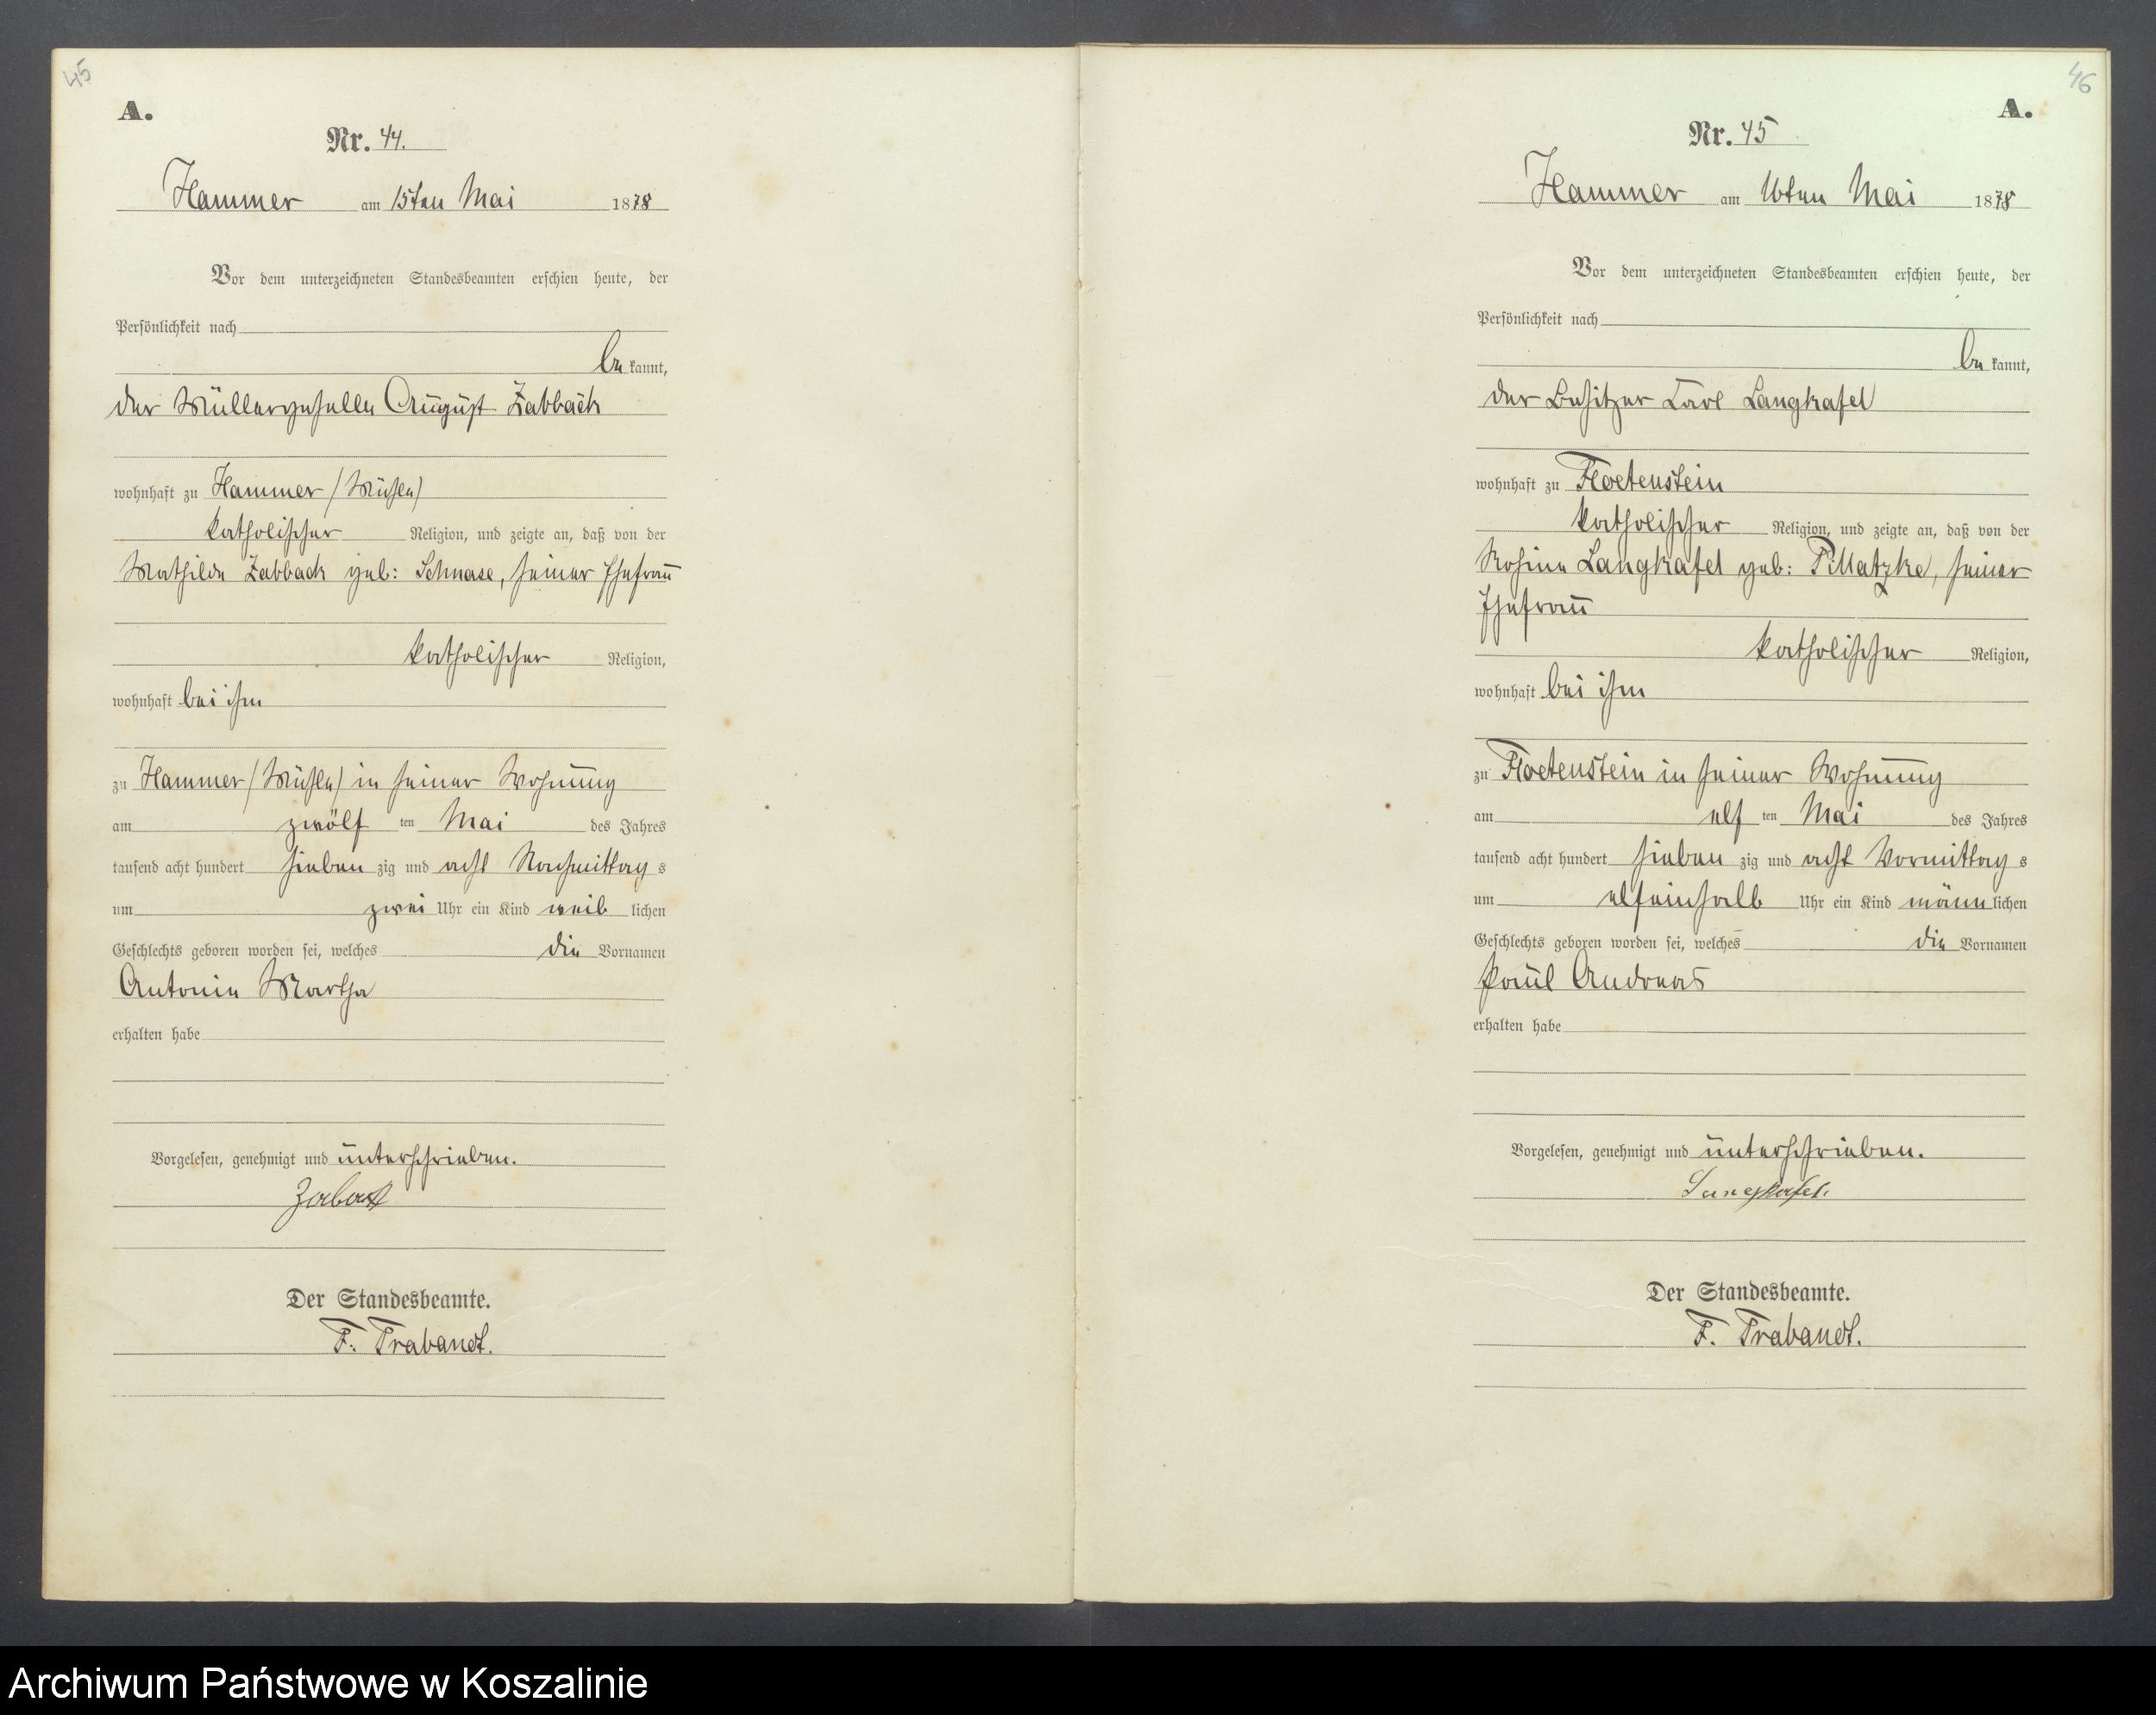 45
A.
Nr. 44.
Hammer am 15ten Mai 1878
Vor dem unterzeichneten Standesbeamten erschien heute, der
Persönlichkeit nach
be kannt,
der Müllergeselle August Zabback
wohnhaft zu Hammer (Mühle)
katholischer Religion, und zeigte an, daß von der
Mathilde Zabback geb: Schnase, seiner Ehefrau
katholischer Religion,
wohnhaft bei ihm
zu Hammer (Mühle) in seiner Wohnung
am zwölf ten Mai des Jahres
tausend acht hundert sieben zig und acht Nachmittag s
um zwei Uhr ein Kind weib lichen
Geschlechts geboren worden sei, welches die Vornamen
Antonie Martha
erhalten habe
Vorgelesen, genehmigt und unterschrieben.
Der Standesbeamte.
F. Trabandt.
46
A.
Nr. 45
Hammer am 16ten Mai 1878
Vor dem unterzeichneten Standesbeamten erschien heute, der
Persönlichkeit nach
be kannt,
der Besitzer Carl Langkafel
wohnhaft zu Floetenstein
katholischer Religion, und zeigte an, daß von der
Rosine Langkafel geb: Pillatzke, seiner
Ehefrau
katholischer Religion,
wohnhaft bei ihm
zu Floetenstein in seiner Wohnung
am elf ten Mai des Jahres
tausend acht hundert sieben zig und acht Vormittag s
um elfeinhalb Uhr ein Kind männ lichen
Geschlechts geboren worden sei, welches die Vornamen
Paul Andreas
erhalten habe
Vorgelesen, genehmigt und unterschrieben.
Langkafel.
Der Standesbeamte.
F. Trabandt.
Archiwum Państwowe w Koszalinie